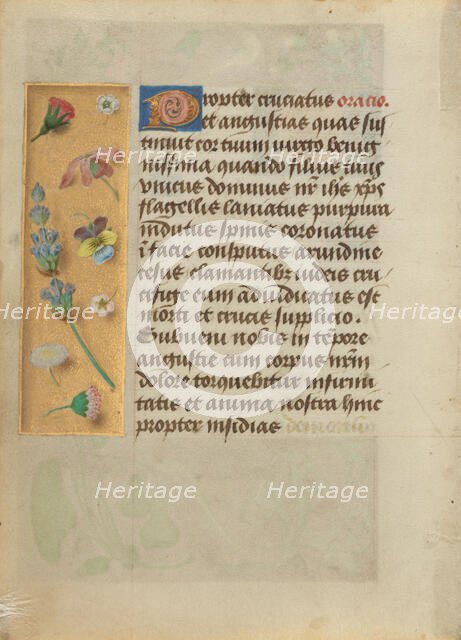 Propter cruciatus oracio.
et angustias quas sus
tinuit cor tuum virgo benig
nissima quando filius tuus
vnicus dominus nr ihs xps
flagellis laniatus purpura
indutus spinis coronatus
i facie consputus arundine
cesus clamantibz iudeis cru
cifige eum adiudicatus est
morti et crucis supplicio.
Subueni nobis in tempore
angustie cum corpus nrm
dolore torquebitur infirmi
tatis et anima nostra hinc
propter insidias demonum
Heritage Heritage
Heritage Heritage
Heritage Heritage
Heritage Heritage
Heritage Heritage
©